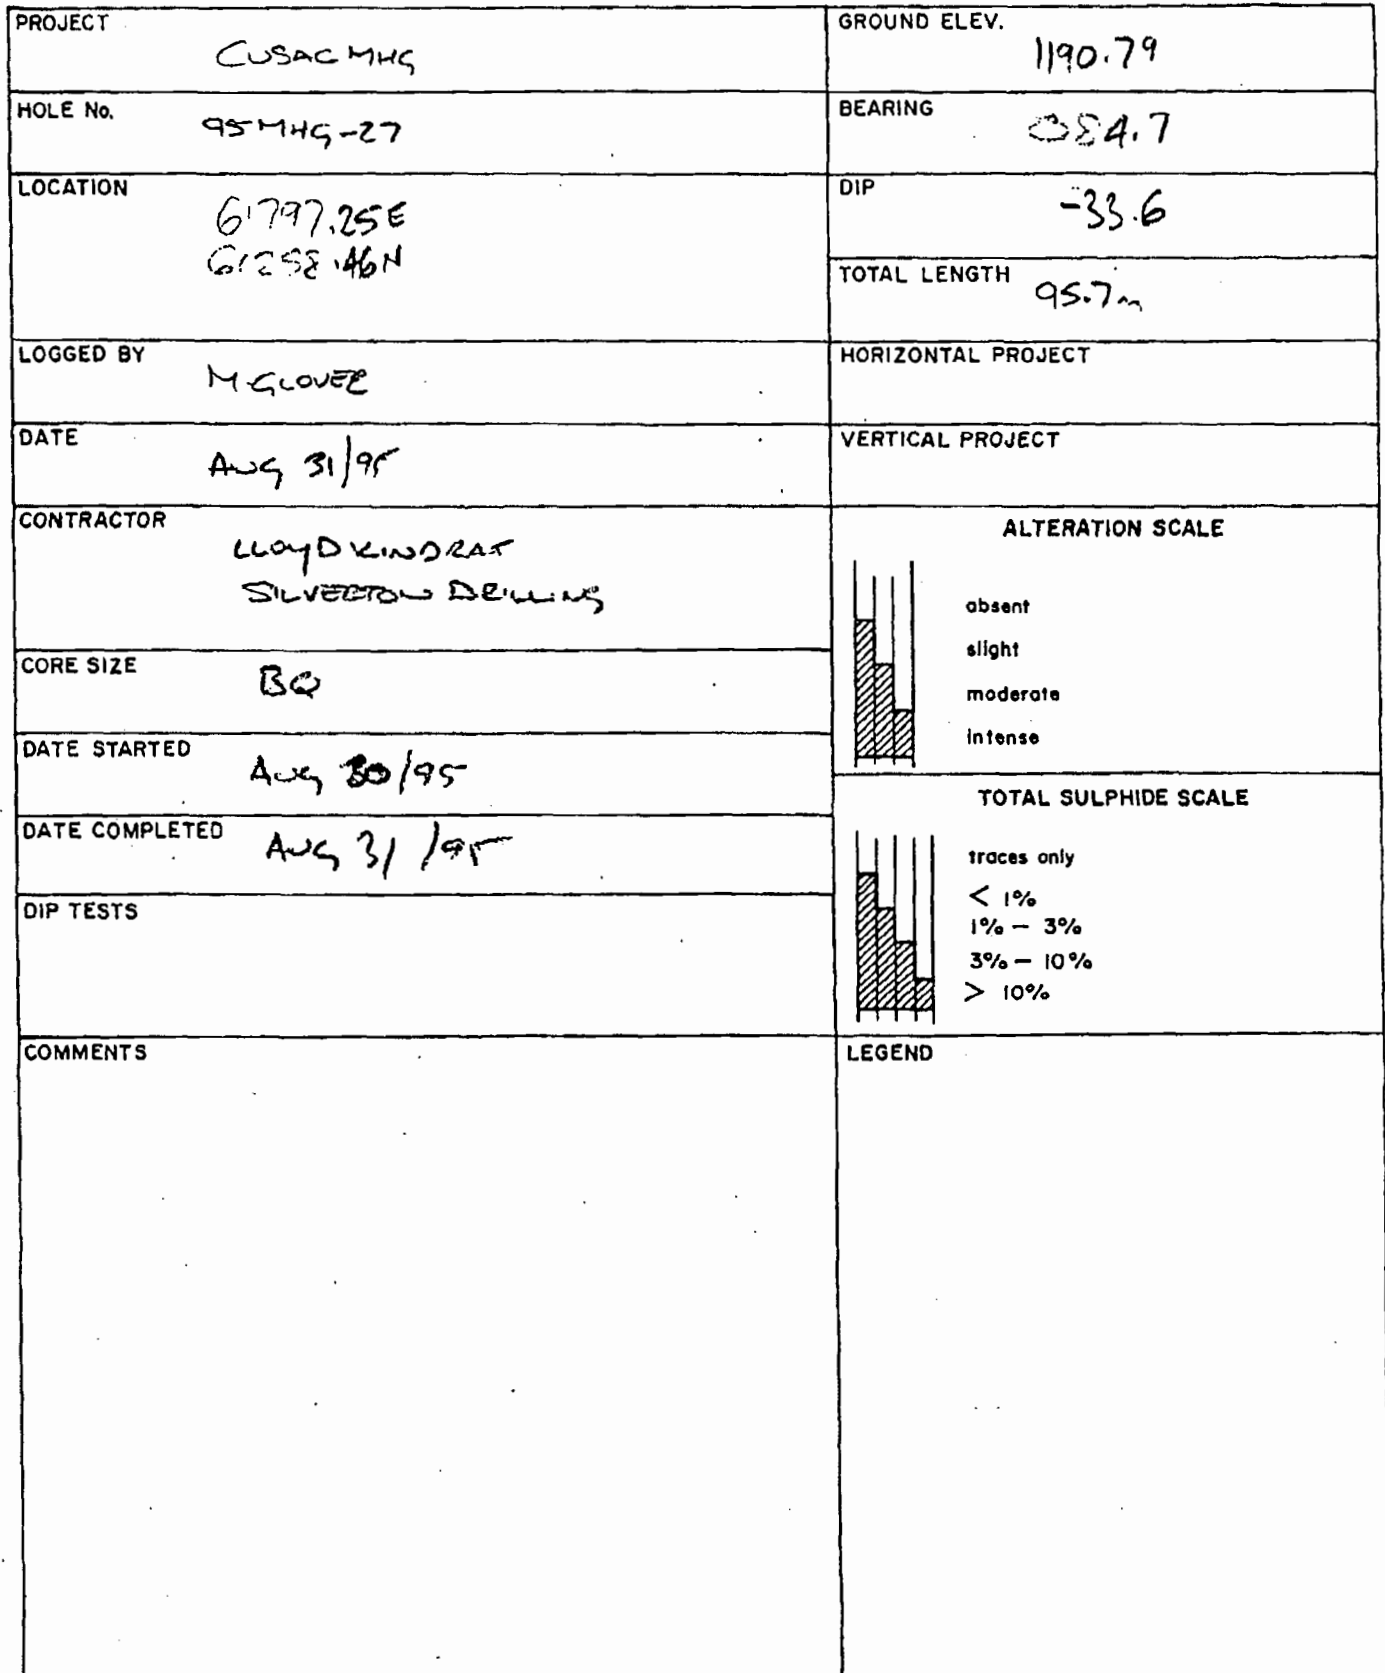 PROJECT
CUSAC MHG
HOLE No.
95MHG-27
LOCATION
61797.25E
61258.46N
LOGGED BY
M. GLOVER
DATE
AUG 31/95
CONTRACTOR
LLOYD KINDRAT
SILVERTON DRILLING
CORE SIZE
BQ
DATE STARTED
AUG 30/95
DATE COMPLETED
AUG 31/95
DIP TESTS
COMMENTS
GROUND ELEV.
1190.79
BEARING
084.7
DIP
-33.6
TOTAL LENGTH
95.7m
HORIZONTAL PROJECT
VERTICAL PROJECT
ALTERATION SCALE
absent
slight
moderate
intense
TOTAL SULPHIDE SCALE
traces only
< 1%
1% – 3%
3% – 10%
> 10%
LEGEND